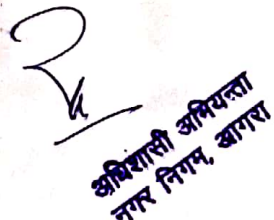 अधिशासी अभियन्ता
नगर निगम, आगरा